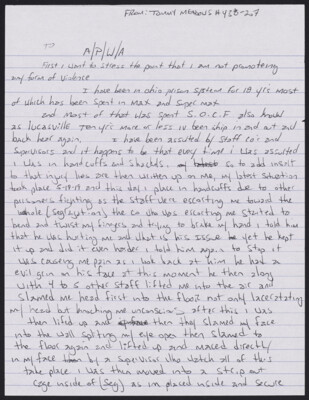 From: Tommy Meadows #438-227
TO
A/P/W/A
First I want to stress the point that I am not promoteing
any form of violence
I have been in ohio prison system for 18 yrs most
of which has been spent in max and super max
and most of that was spent S.O.C.F also known
as Lucasville ten yrs more or less iv been ship in and out and
back hear again. I have been assulted by staff CO's and
supervisors and it happens to be that every time I was assulted
I was in handcuffs and shackls. so to add insert
to that injury lies are then written up on me, my latest situation
took place 5-19-19 and this day I place in handcuffs due to other
prisoners fighting as the staff were escorting me toward the
whole (segregation) the co who was escorting me started to
bend and twist my fingers and trying to brake my hand I told him
that he was hurting me and what is his issue he yet he kept
it up and did it even harder I told him again to stop it
was causeing me pain as I look back at him he had a
evil grin on his face at this moment he then along
with 4 to 5 other staff lifted me into the air and
slamed me head first into the floor not only lacerstating
my head but knocking me unconscious after this I was
then lifted up and then they slamed my face
into the wall spliting my eye open then slamed to
the floor again and lifted up and maced directly
in my face by a supervisor who watch all of this
take place I was then moved into a strip out
cage inside of (seg) as im placed inside and secure